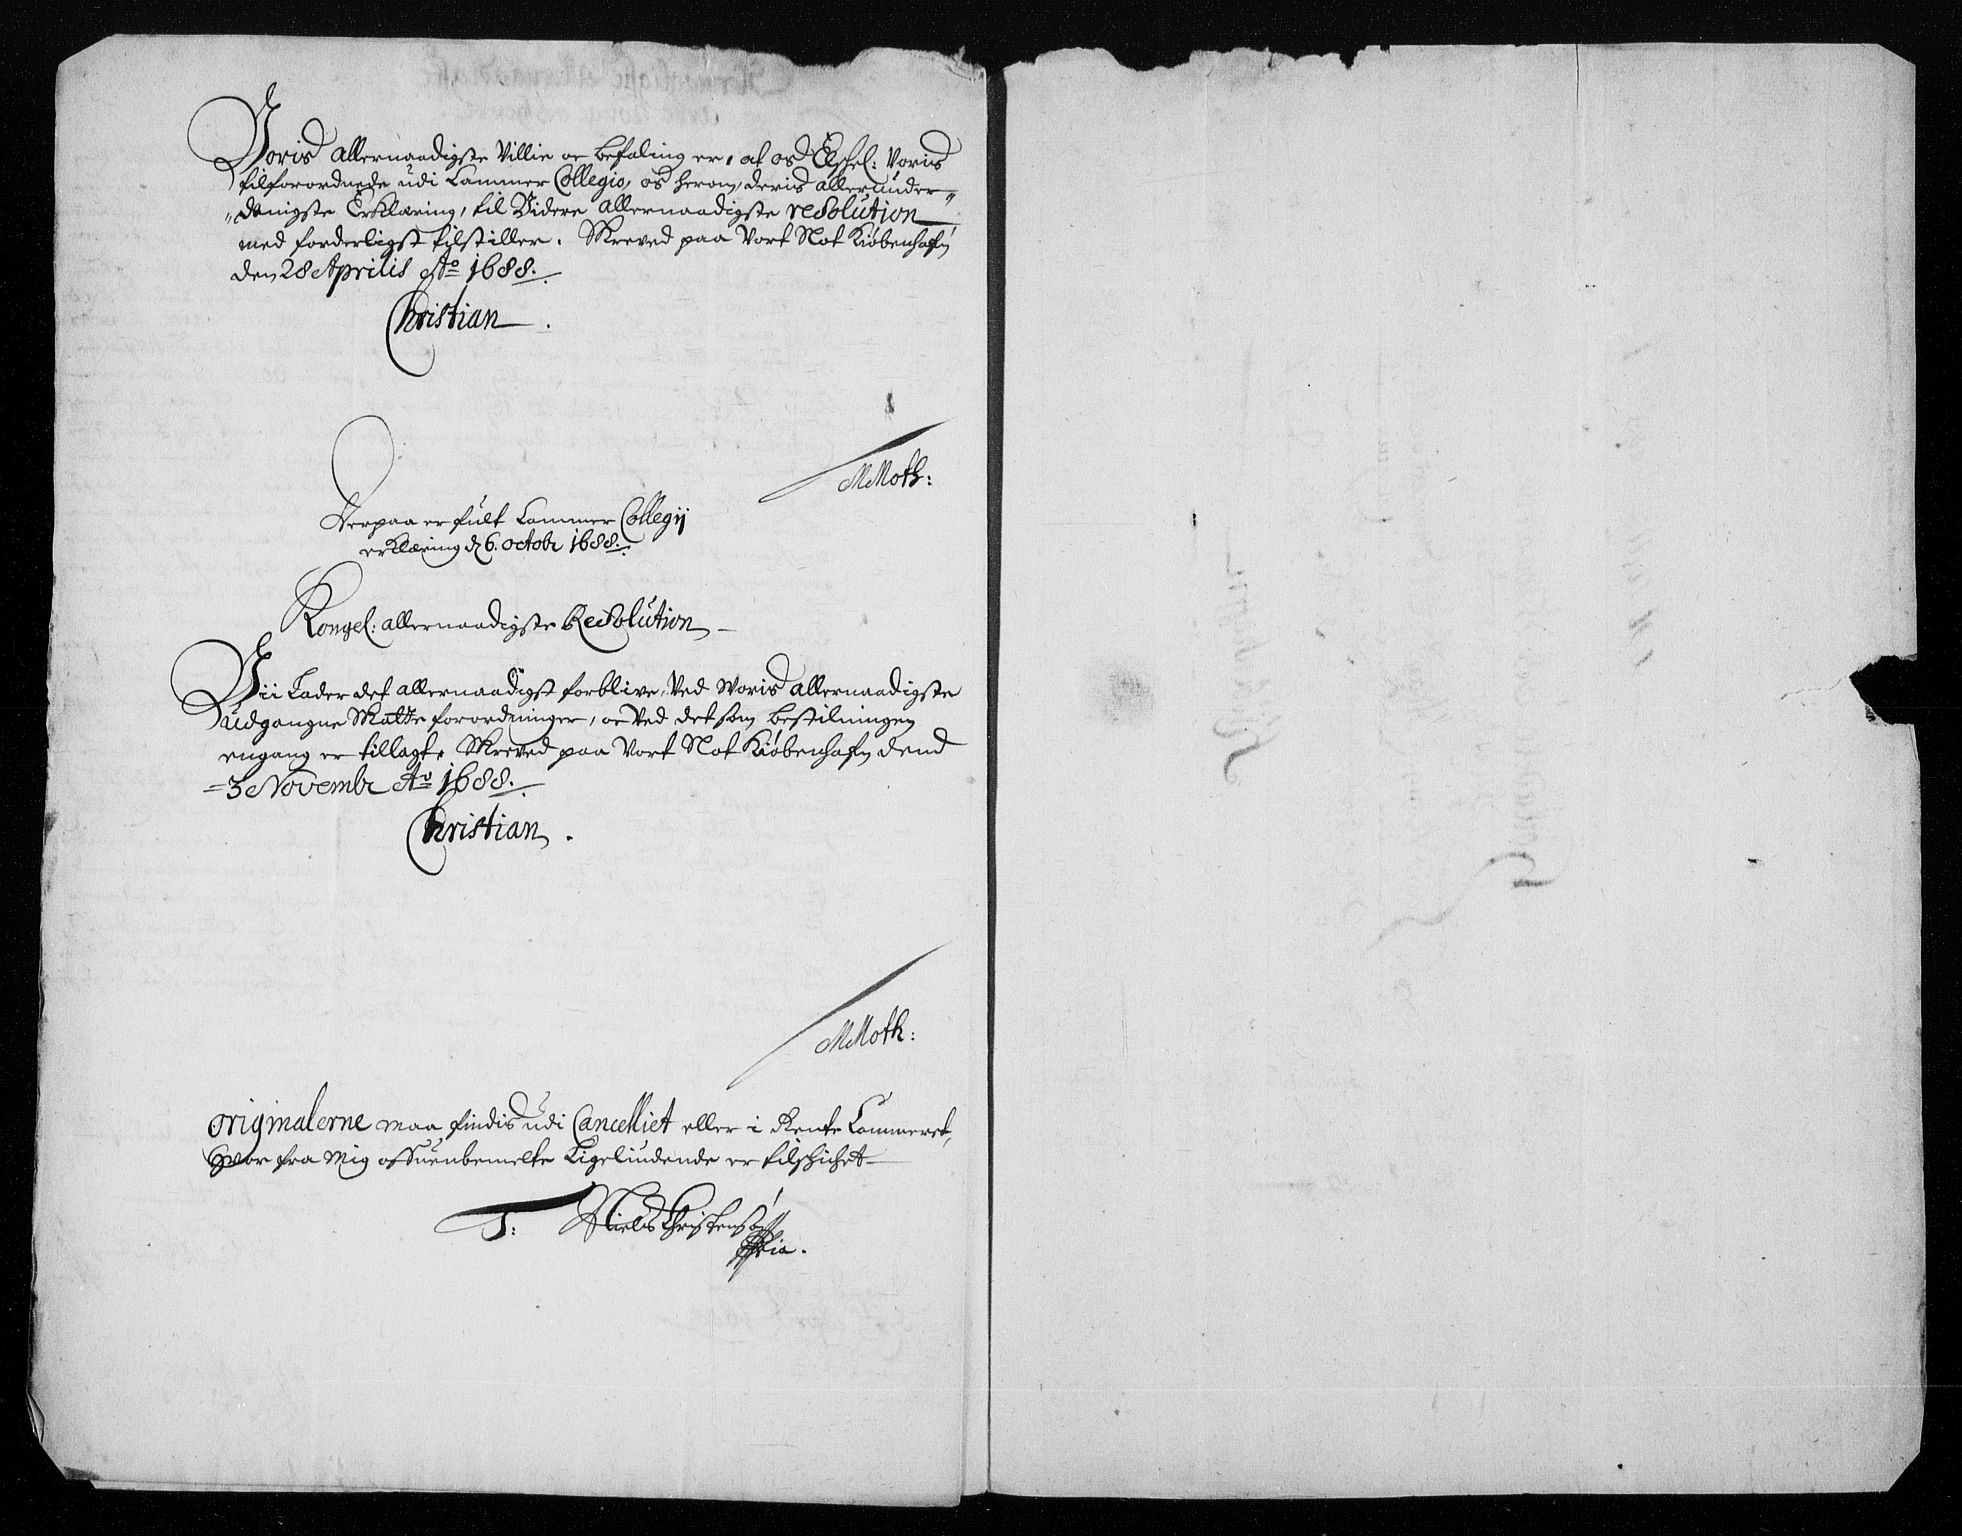 Voris allernaadigste Villie oc befaling er, at os Elschel: Voris
tilforordnede udi Cammer Collegio, os herom, deris allerunder-
danigste Erklæring, til Videre allernaadigste resolution
med forderligst tilstiller. Skreved paa Vort Slot Kiøbenhafn
den 28 Aprilis Ao 1688.
Christian.
MMoth:
Herpaa er fult Cammer Collegij
erklæring d 6. octobr 1688.
Kongel: allernaadigste Resolution
Vii Lader det allernaadigst forblive, Ved Woris allernaadigste
udgangne Skatte forordninger, oc Ved det som bestilningen
engang er tillagt. Skreved paa Vort Slot Kiøbenhafn dend
3 Novembr Ao 1688.
Christian.
MMoth:
Originalerne maa findis udi Cancelliet eller i Rente Cammeret,
hvor fra mig ofvuenbemelte Ligeliudende er tilschichet
T: Niels Christensøn